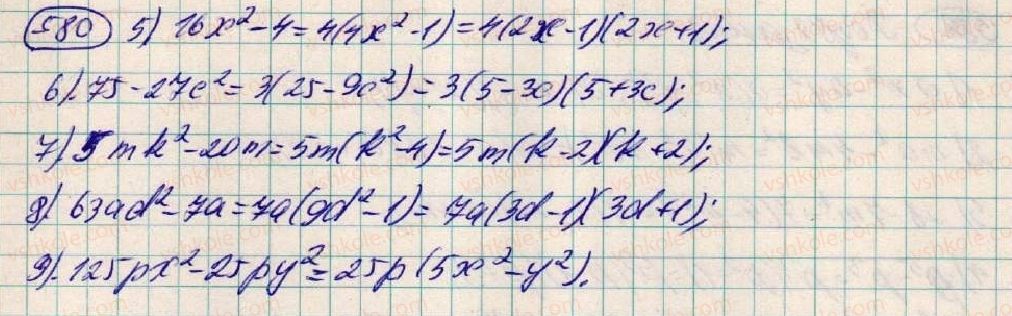 580 5) 16x² - 4 = 4(4x² - 1) = 4(2x - 1)(2x + 1);
6). 75 - 27c² = 3(25 - 9c²) = 3(5 - 3c)(5 + 3c);
7) 5mk² - 20m = 5m(k² - 4) = 5m(k - 2)(k + 2);
8) 63ad² - 7a = 7a(9d² - 1) = 7a(3d - 1)(3d + 1);
9). 125px² - 25py² = 25p(5x² - y²).